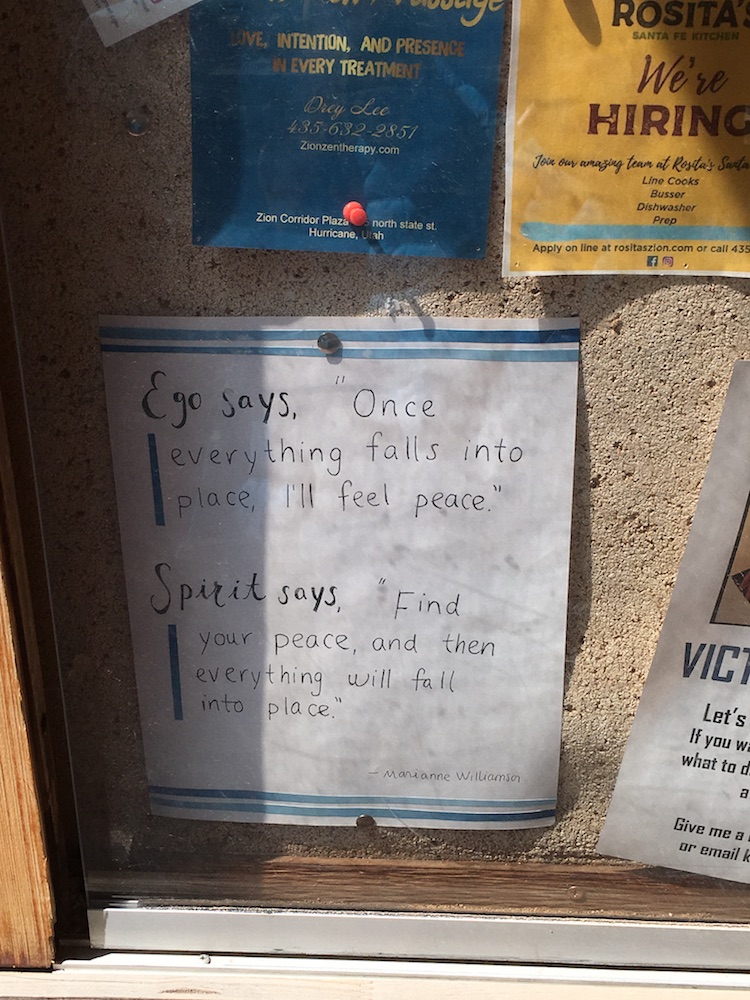 LOVE, INTENTION, AND PRESENCE
IN EVERY TREATMENT
Drey Lee
435-632-2857
Zionzentherapy.com
Zion Corridor Plaza north state st.
Hurricane, Utah
ROSITA'S
SANTA FE KITCHEN
We're
HIRING
Join our amazing team at Rosita's Santa
Line Cooks
Busser
Dishwasher
Prep
Apply on line at rositaszion.com or call 435
Ego says, "Once
everything falls into
place, I'll feel peace."
Spirit says, "Find
your peace, and then
everything will fall
into place."
- Marianne Williamson
VICT
Let's
If you
what to
a
Give me a
or email